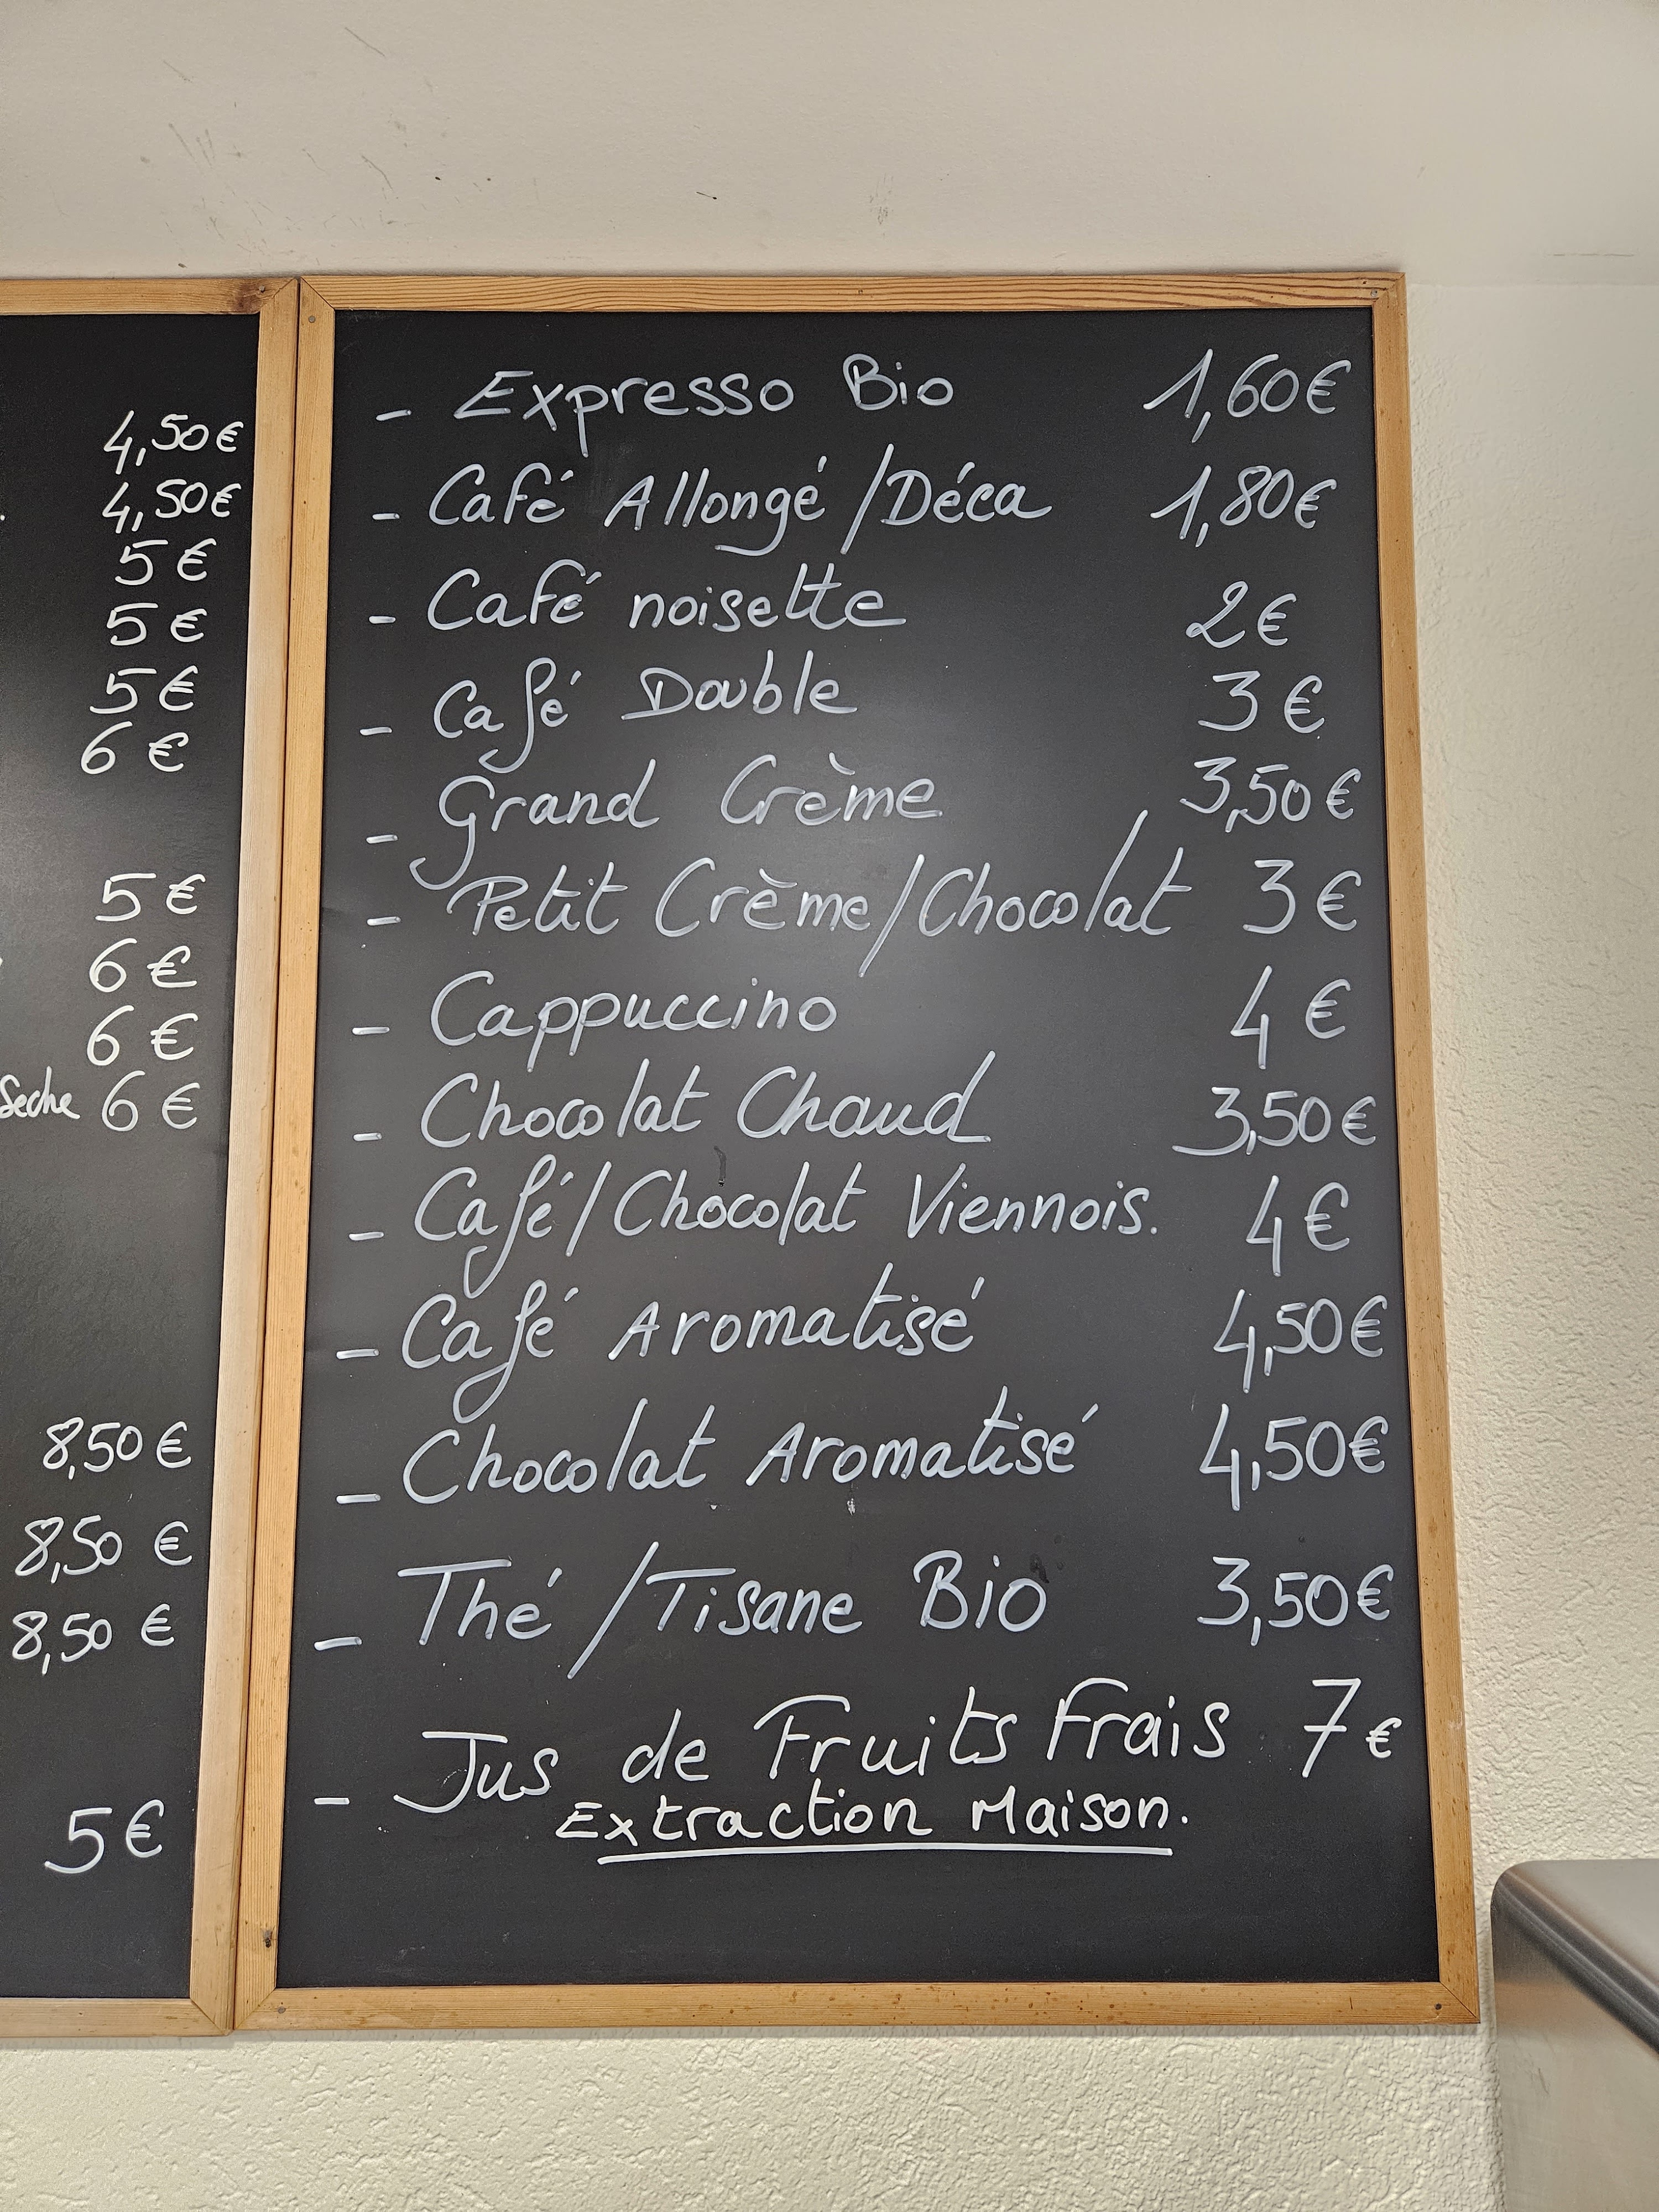 4,50€
4,50€
5€
5€
5€
6€
5€
6€
6€
Seche 6€
8,50€
8,50€
8,50€
5€
- Expresso Bio 1,60€
- Café Allongé /Déca 1,80€
- Café noisette 2€
- Café Double 3€
- Grand Crème 3,50€
- Petit Crème/Chocolat 3€
- Cappuccino 4€
- Chocolat Chaud 3,50€
- Café/Chocolat Viennois. 4€
- Café Aromatisé 4,50€
- Chocolat Aromatisé 4,50€
- Thé /Tisane Bio 3,50€
- Jus de Fruits Frais 7€
Extraction Maison.